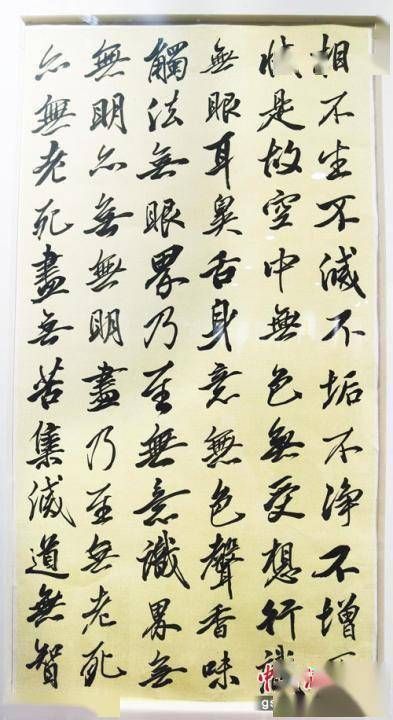 相不生不滅不垢不净不增
減是故空中無色無受想行識
無眼耳鼻舌身意無色聲香味
觸法無眼界乃至無意識界無
無明亦無無明盡乃至無老死
亦無老死盡無苦集滅道無智